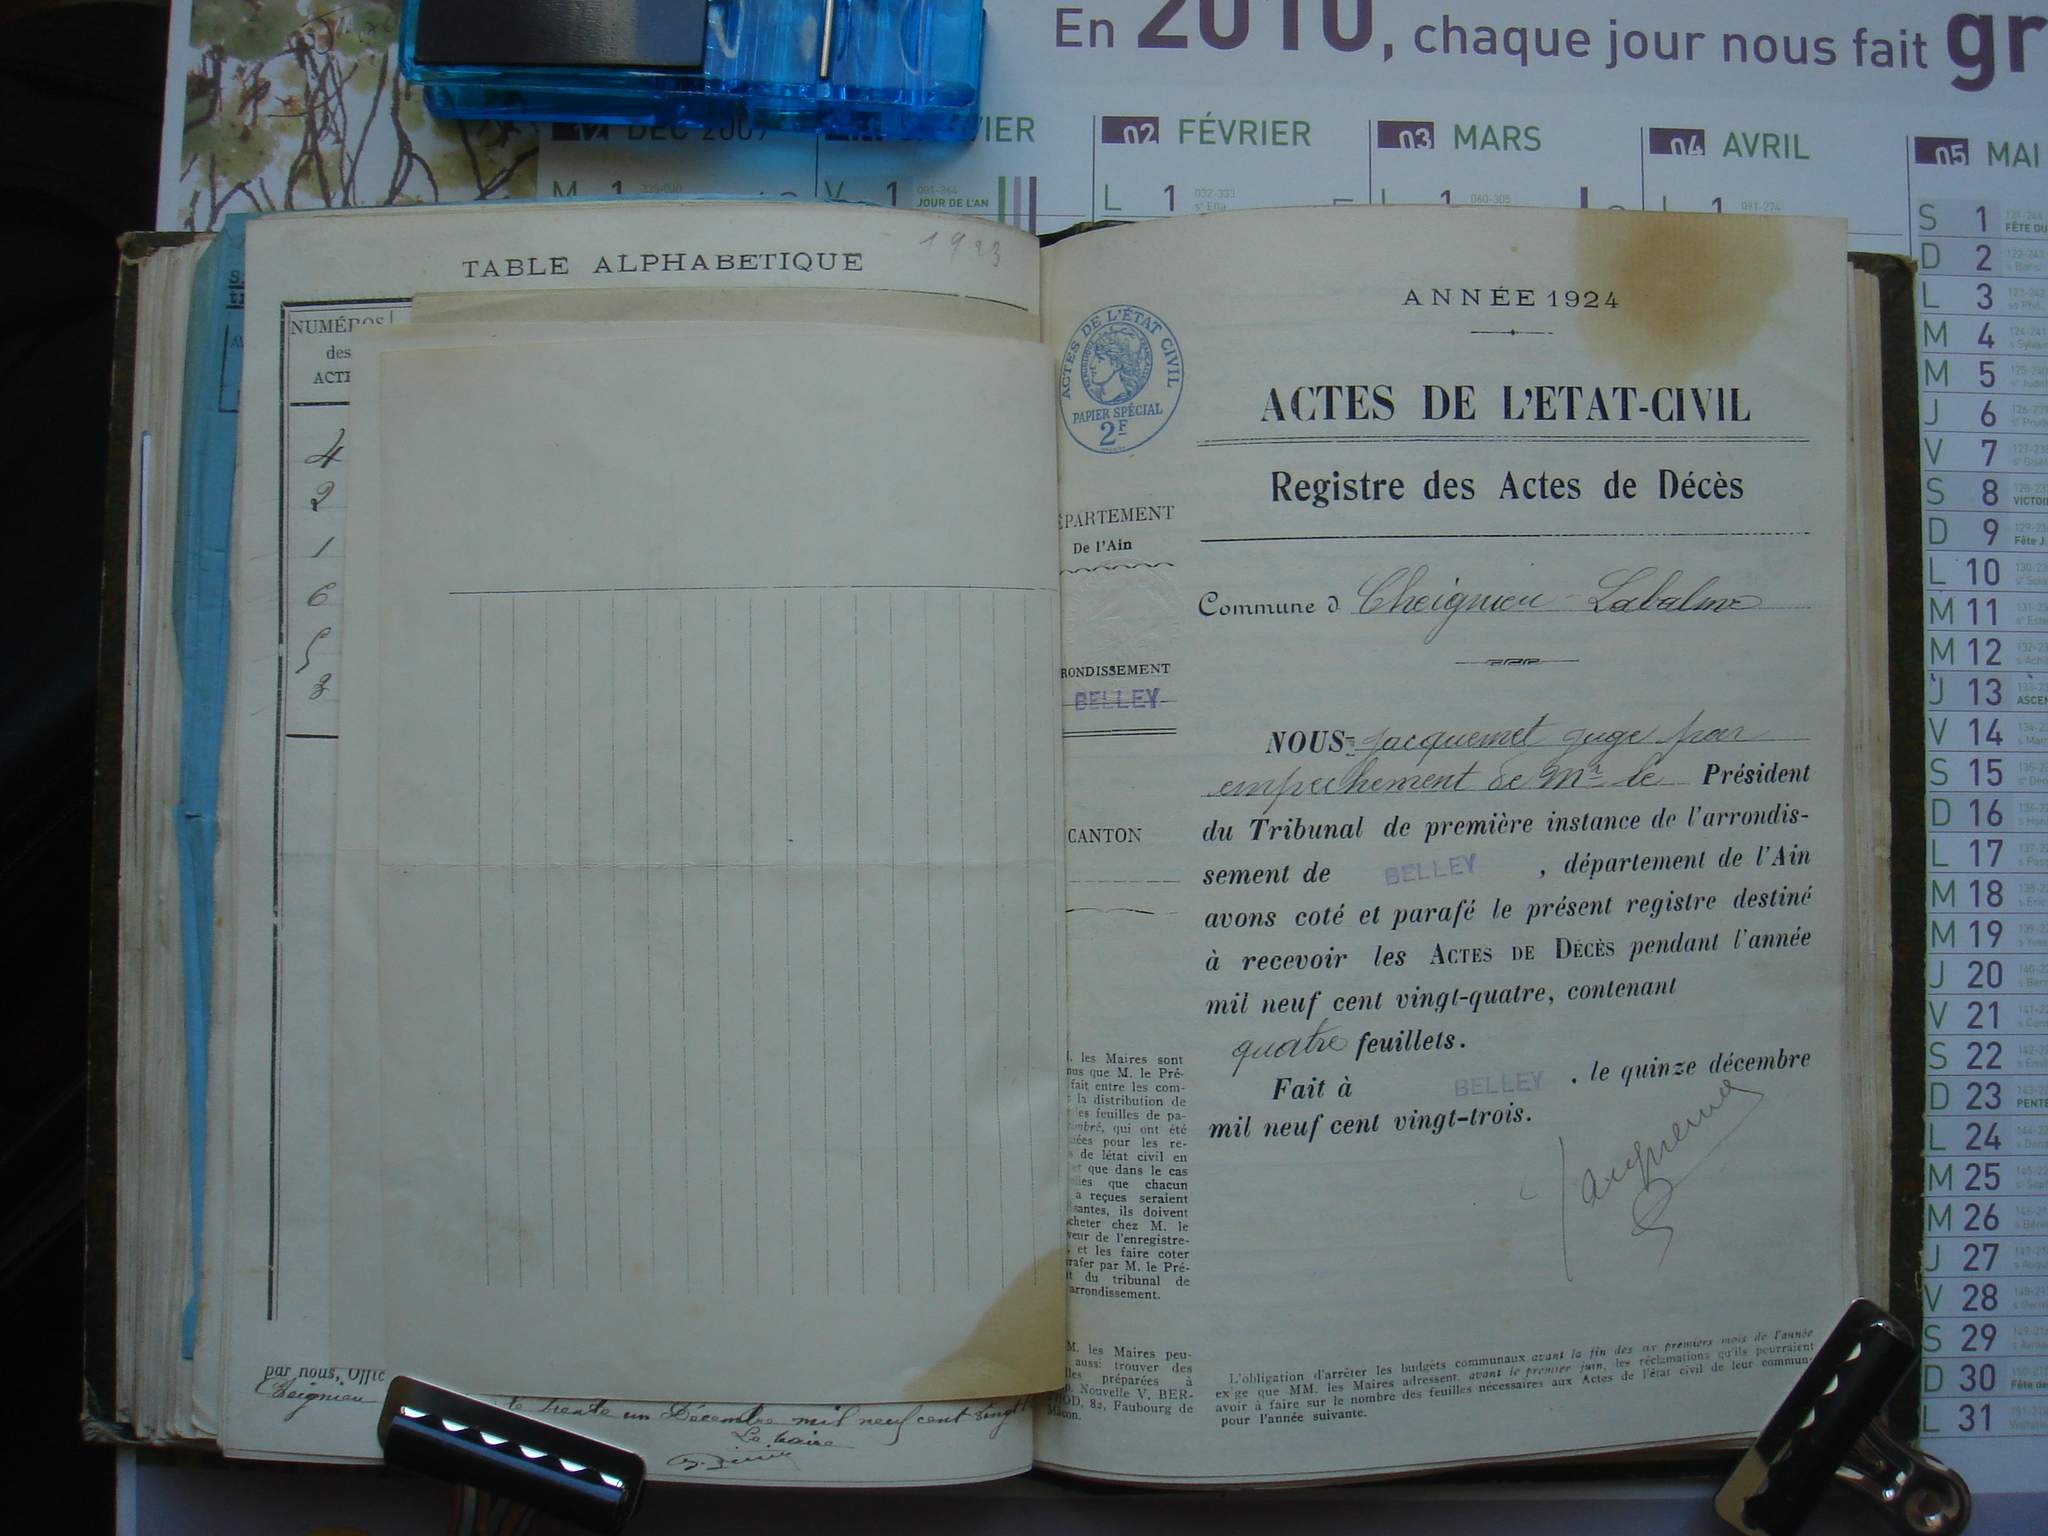 En 2010, chaque jour nous fait gr
DEC 2009
VIER
02 FÉVRIER
03 MARS
04 AVRIL
05 MAI
M 1
V 1 001-364
JOUR DE L'AN
L 1 032-333
sᵗᵉ Ella
L 1 060-305
L 1 091-274
1923
TABLE ALPHABETIQUE
NUMÉROS
des
ACTE
4
2
1
6
5
3
par nous, Offic
Cheignieu
le trente un Décembre mil neuf cent vingt
Le Maire
ANNÉE 1924
ACTES DE L'ÉTAT CIVIL
RÉPUBLIQUE FRANÇAISE
PAPIER SPÉCIAL
2F
ACTES DE L'ETAT-CIVIL
Registre des Actes de Décès
ÉPARTEMENT
De l'Ain
Commune d Cheignieu Labalme
RONDISSEMENT
BELLEY
CANTON
NOUS Jacquemet juge par
empechement de Mr le Président
du Tribunal de première instance de l'arrondis-
sement de BELLEY, département de l'Ain
avons coté et parafé le présent registre destiné
à recevoir les ACTES DE DÉCÈS pendant l'année
mil neuf cent vingt-quatre, contenant
quatre feuillets.
Fait à BELLEY, le quinze décembre
mil neuf cent vingt-trois.
Jacquemet
. les Maires sont
nus que M. le Pré-
fait entre les com-
la distribution de
es feuilles de pa-
imbré, qui ont été
nées pour les re-
s de létat civil en
et que dans le cas
lles que chacun
a reçues seraient
santes, ils doivent
cheter chez M. le
veur de l'enregistre-
, et les faire coter
rafer par M. le Pré-
t du tribunal de
arrondissement.
M. les Maires peu-
aussi trouver des
les préparées à
p. Nouvelle V. BER-
HOD, 82, Faubourg de
Mâcon.
L'obligation d'arrêter les budgets communaux avant la fin des six premiers mois de l'année
exige que MM. les Maires adressent, avant le premier juin, les réclamations qu'ils pourraient
avoir à faire sur le nombre des feuilles nécessaires aux Actes de l'état civil de leur commune
pour l'année suivante.
S 1 FÊTE DU
D 2
L 3
M 4
M 5
J 6
V 7
S 8 VICTOI
D 9 Fête J.
L 10
M 11
M 12
J 13 ASCEN
V 14
S 15
D 16
L 17
M 18
M 19
J 20
V 21
S 22
D 23 PENTE
L 24
M 25
M 26
J 27
V 28
S 29
D 30 Fête de
L 31